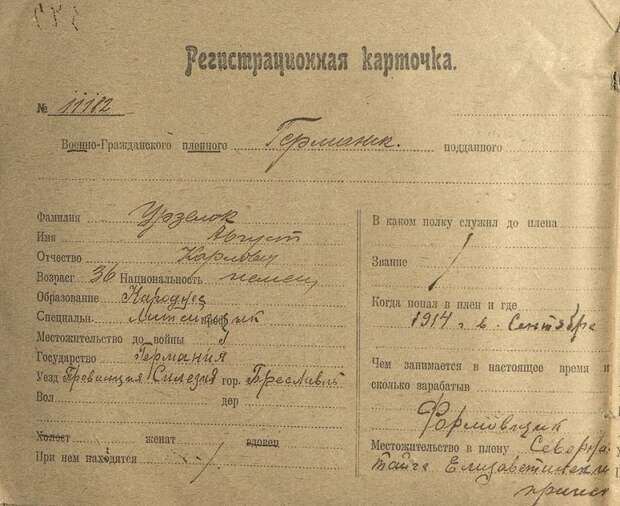 Регистрационная карточка.
№ 11182
Военно-Гражданского пленного Германск. подданного
Фамилия
Имя Август
Отчество Карлович
Возраст 36 Национальность немец
Образование Народное
Специальн.
Местожительство до войны
Государство Германия
Уезд Превинция Силезия гор. Бреславый
Вол дер
Холост женат вдовец
При нем находятся
В каком полку служил до плена
Звание
Когда попал в плен и где
1914 г. в. Сентябре
Чем занимается в настоящее время и
сколько зарабатыв
Формовщик
Местожительство в плену Северна
тайга
приіск